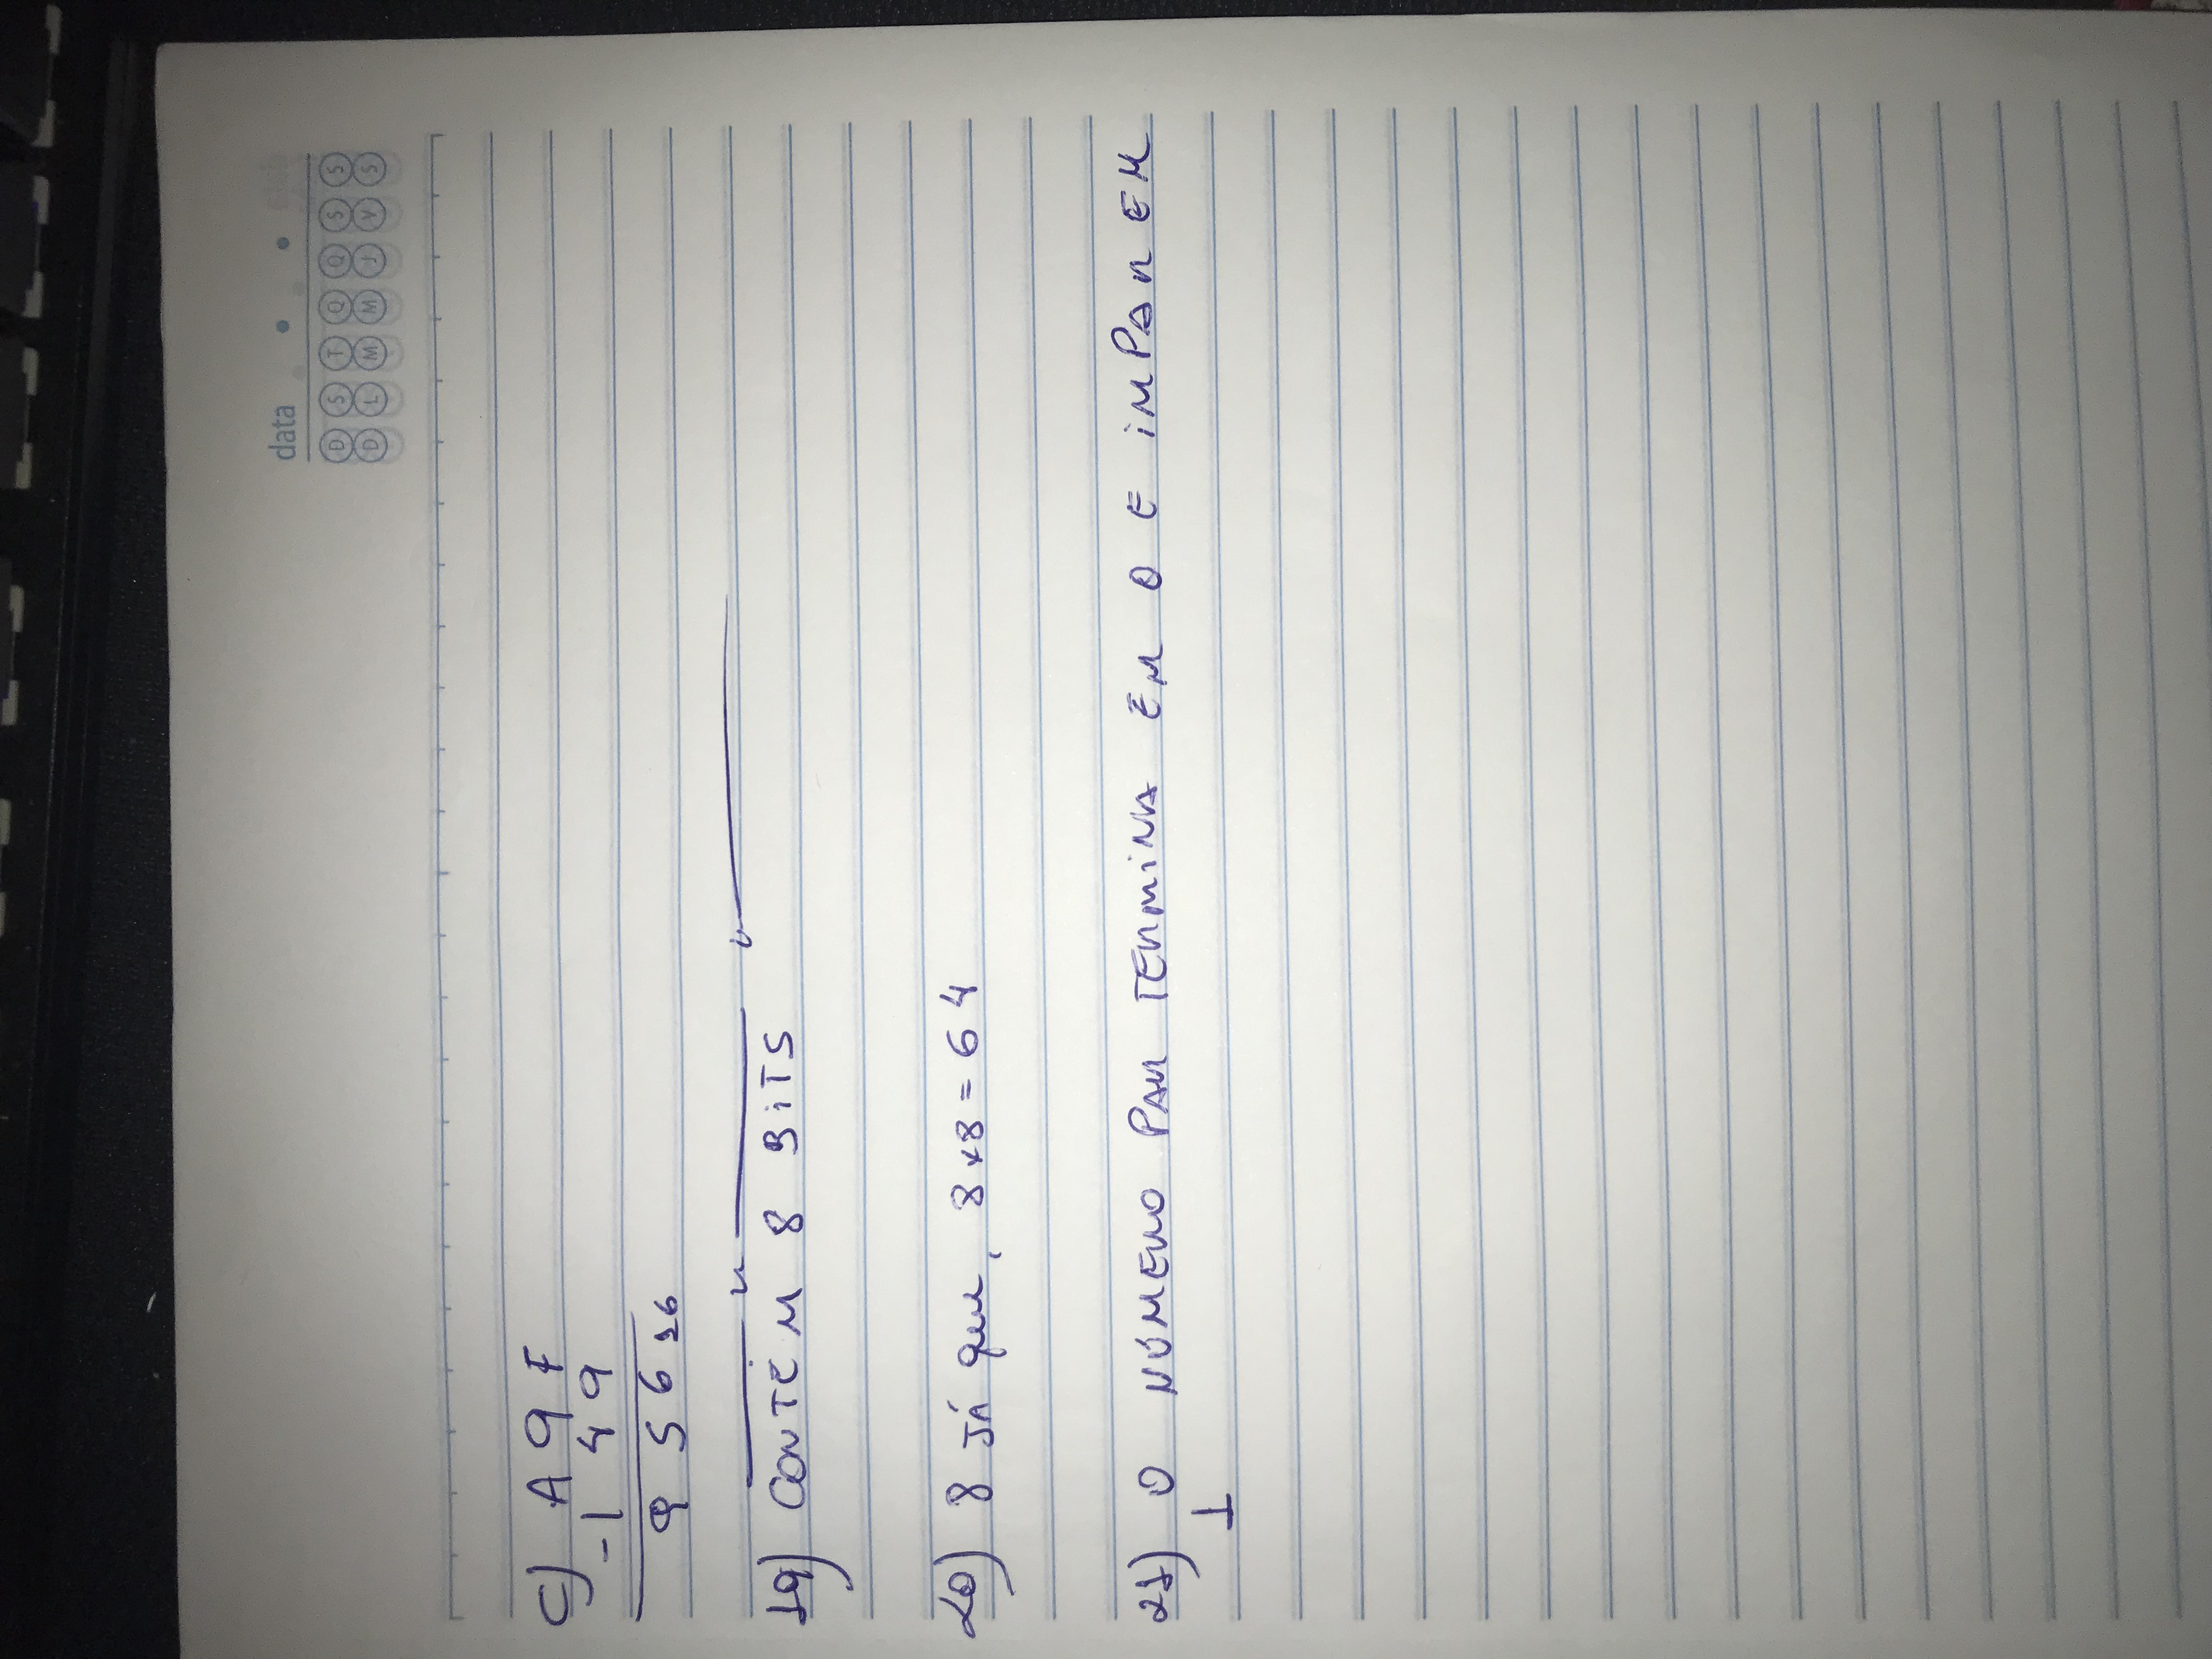 data
D S T Q Q S S
D L M M J V S
C) A 9 F
-1 4 9
9 5 6 16
19) CONTÉM 8 BiTS
20) 8 JÁ que, 8x8 = 64
21) O NÚMERO PAR TERMINA EM 0 E iMPAR EM
1